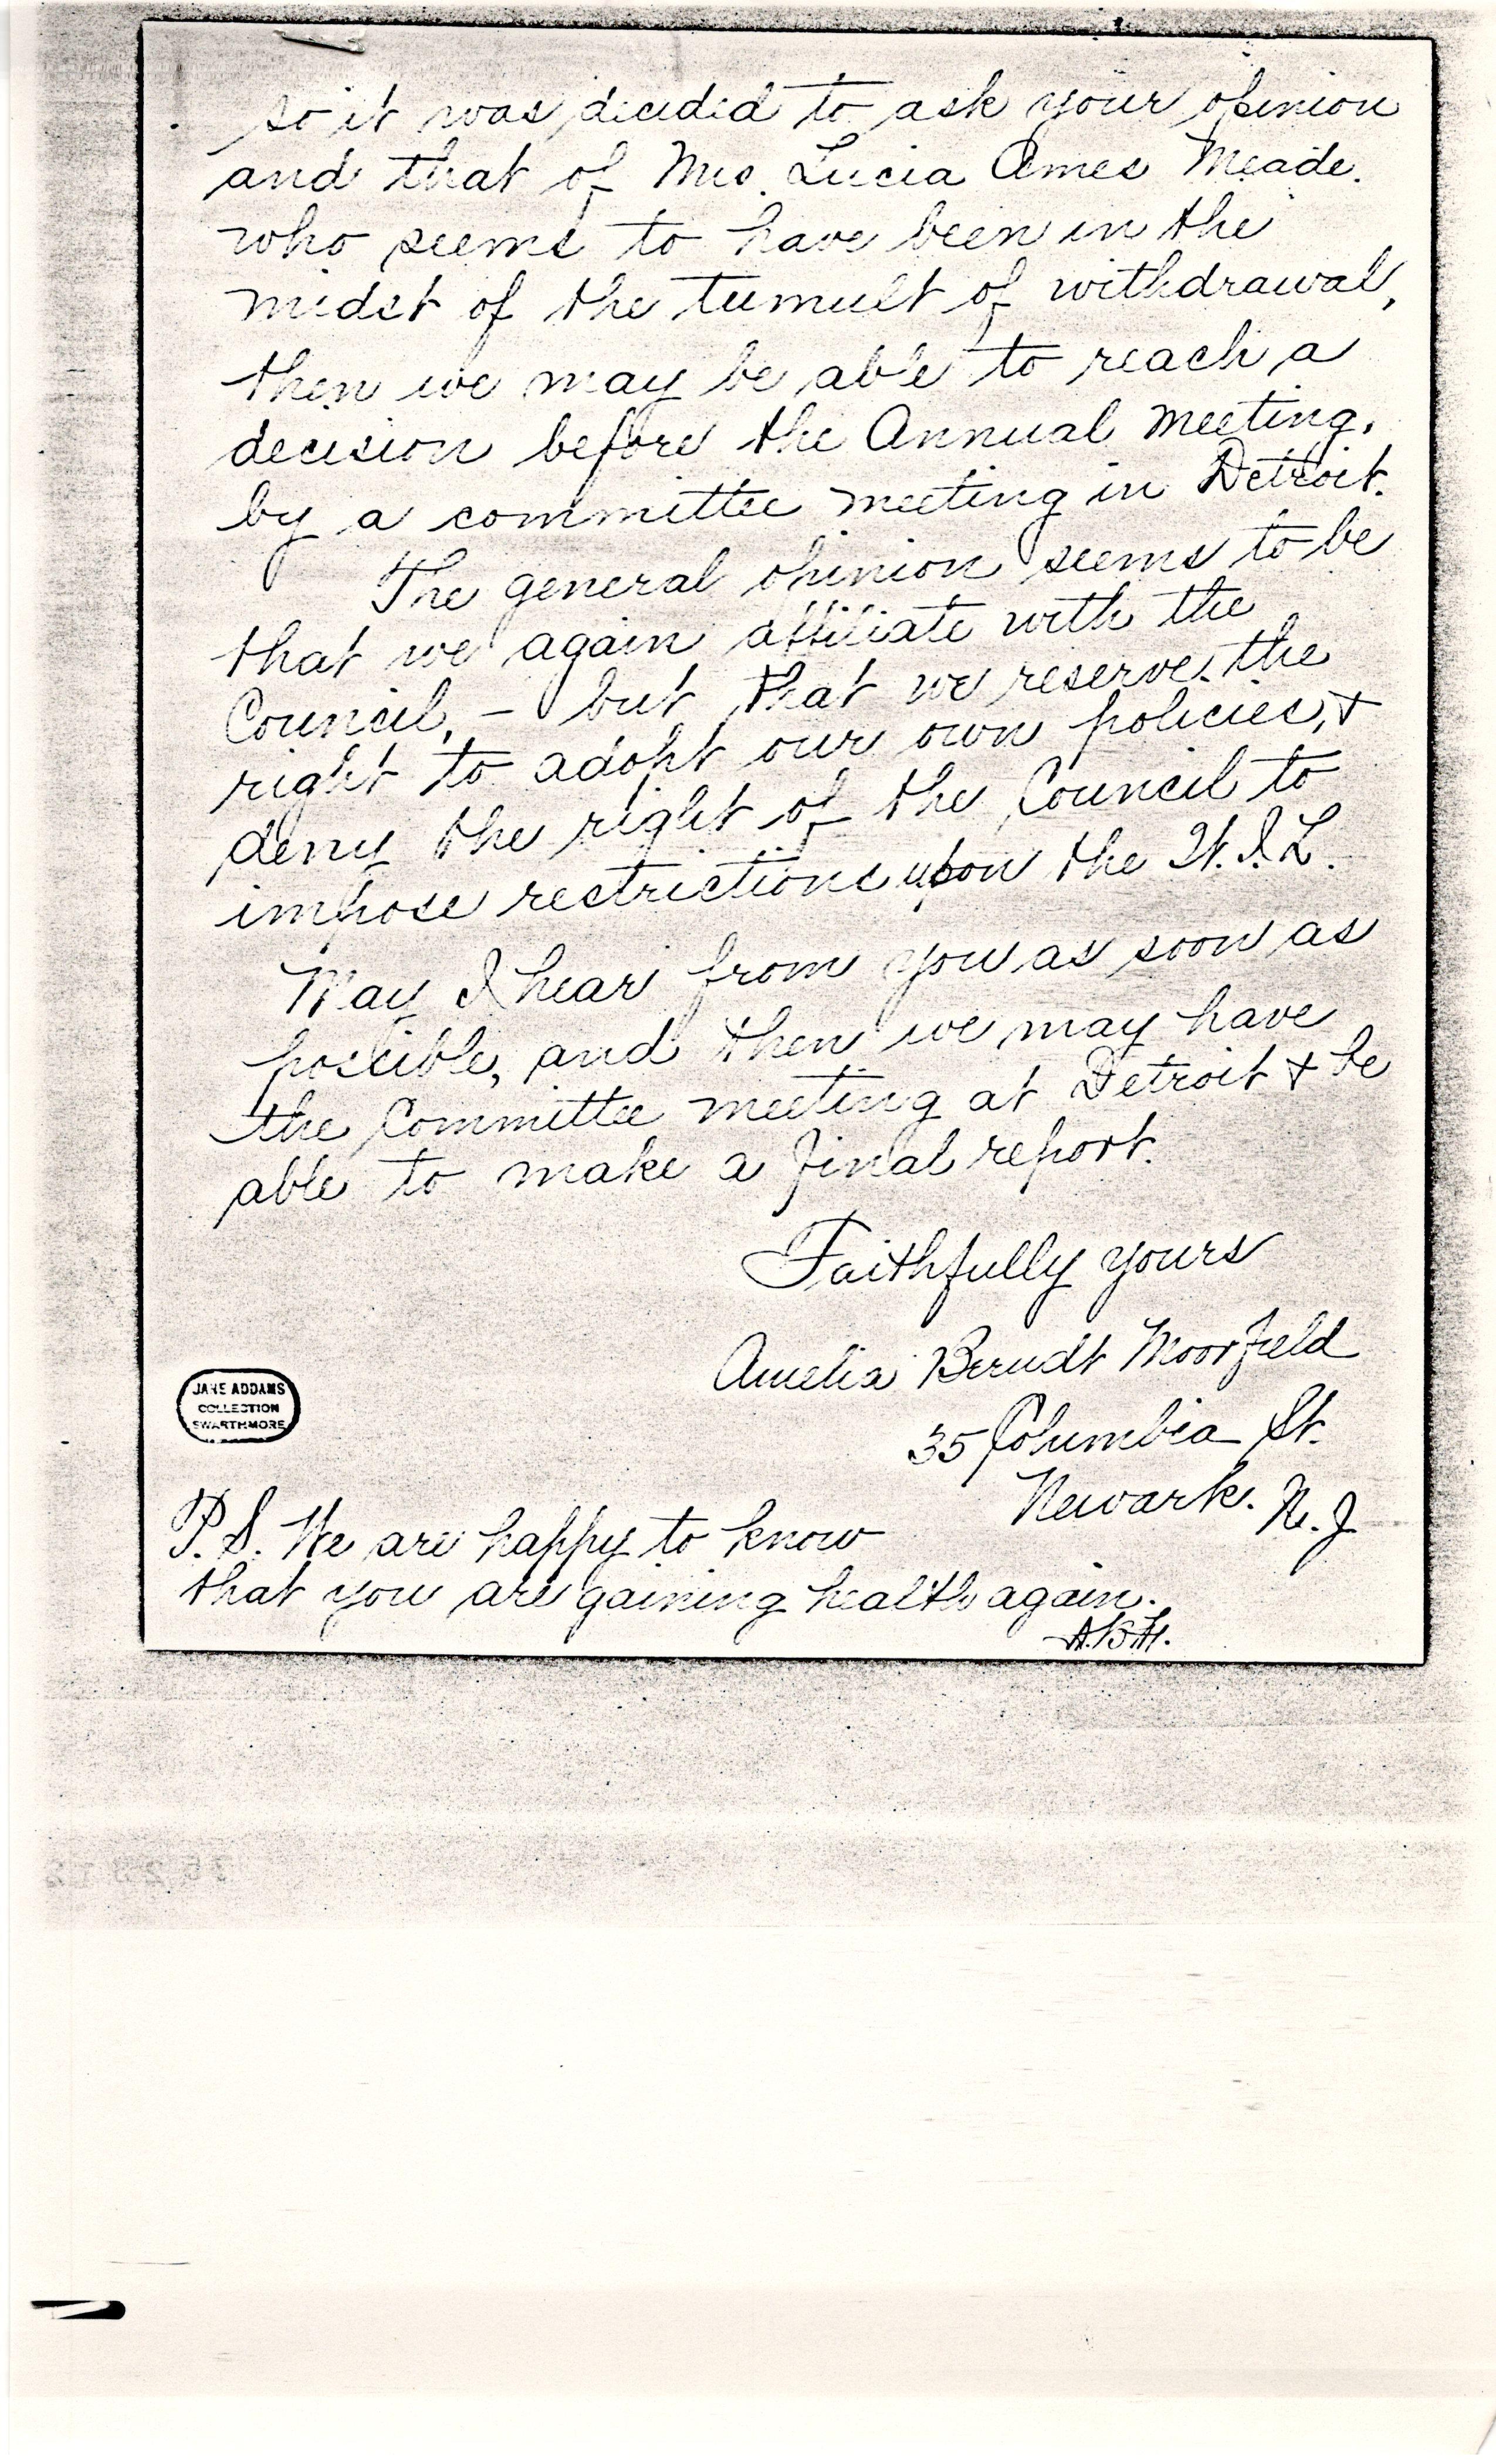 so it was decided to ask your opinion
and that of Mrs. Lucia Ames Meade.
who seems to have been in the
midst of the tumult of withdrawal,
then we may be able to reach a
decision before the Annual meeting,
by a committee meeting in Detroit.
The general opinion seems to be
that we again affiliate with the
Council, – but that we reserve the
right to adopt our own policies, &
deny the right of the Council to
impose restrictions upon the W.I.L.
May I hear from you as soon as
possible, and then we may have
the Committee meeting at Detroit & be
able to make a final report.
Faithfully yours
Amelia Berndt Moorfield
35 Columbia St.
Newark. N.J
JANE ADDAMS
COLLECTION
SWARTHMORE
P.S. We are happy to know
that you are gaining health again.